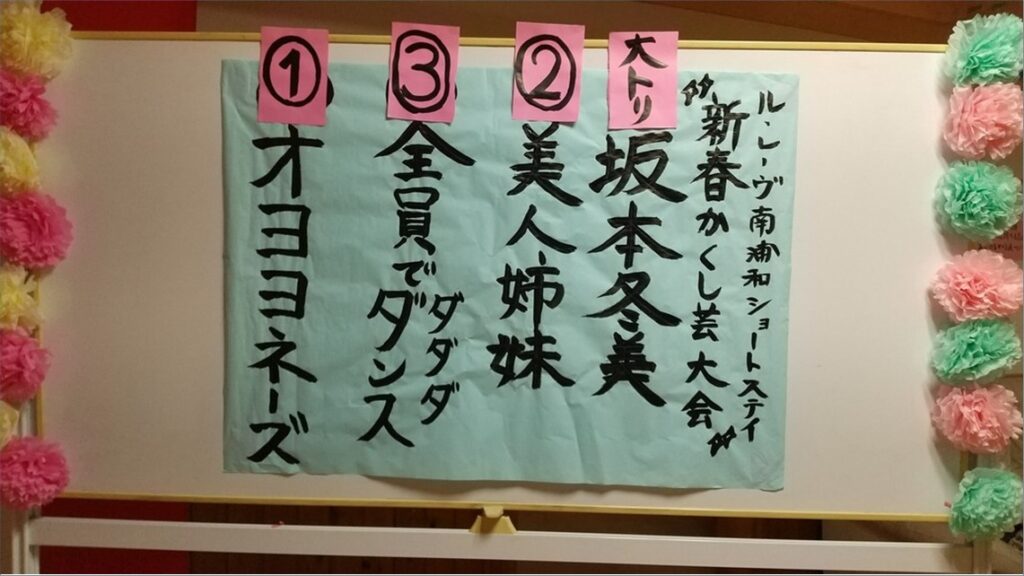 ル・レーヴ南浦和ショートステイ
〝新春かくし芸大会〟
大トリ
坂本冬美
②
美人姉妹
③
全員で
ダダダ
ダンス
①
オヨヨネーズ